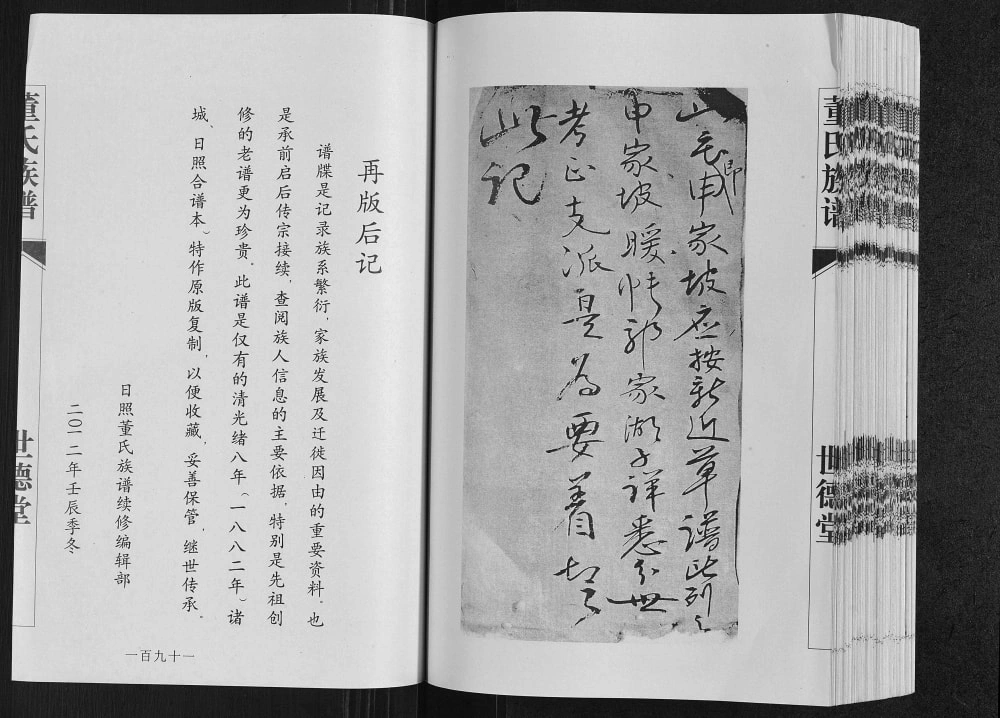 董氏族谱
世德堂
山毛(即)申家坡应按新近草谱此列之
申家坡暖帐郭家湖子详悉分世
考正支派是为要着切
此记
再版后记
谱牒是记录族系繁衍，家族发展及迁徙因由的重要资料。也
是承前启后传宗接续，查阅族人信息的主要依据，特别是先祖创
修的老谱更为珍贵。此谱是仅有的清光绪八年（一八八二年）诸
城、日照合谱本，特作原版复制，以便收藏，妥善保管，继世传承。
日照董氏族谱续修编辑部
二〇一二年壬辰季冬
一百九十一
董氏族谱
世德堂